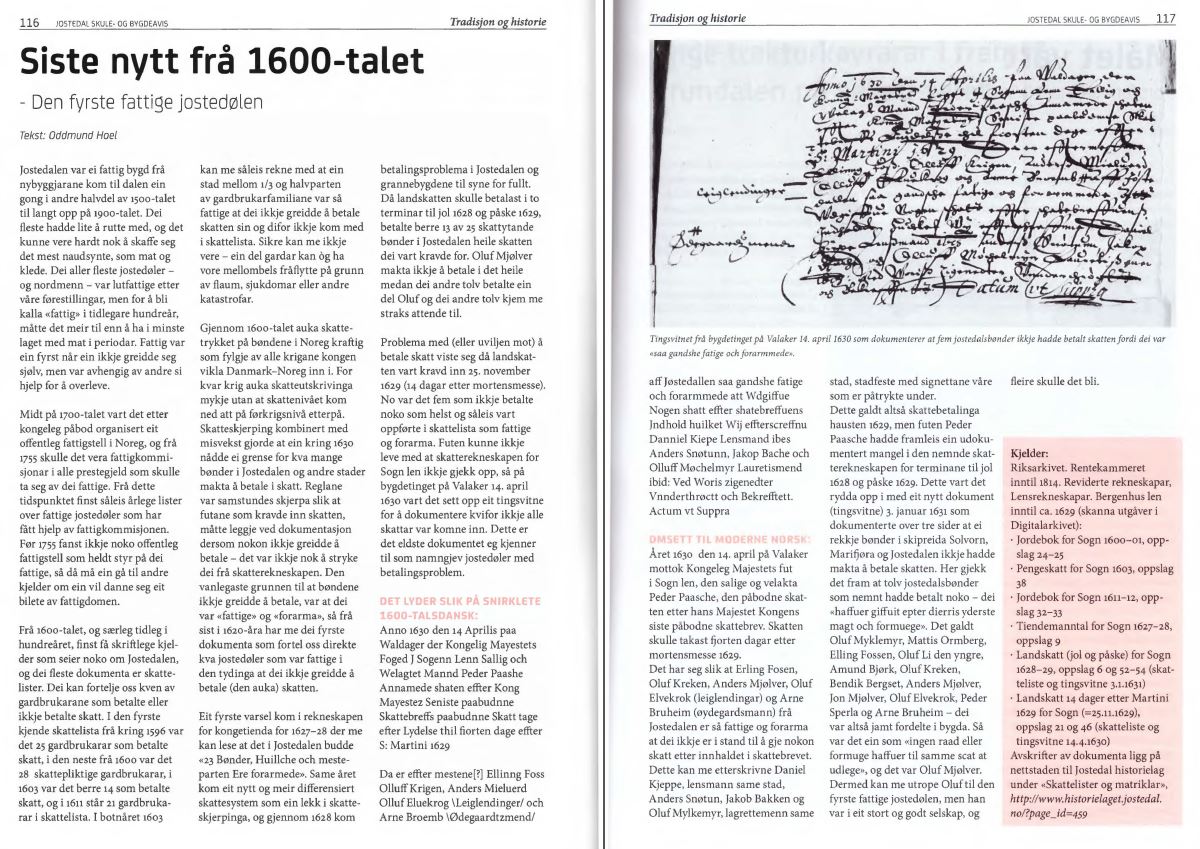 116 JOSTEDAL SKULE- OG BYGDEAVIS Tradisjon og historie
Siste nytt frå 1600-talet
- Den fyrste fattige jostedølen
Tekst: Oddmund Hoel
Jostedalen var ei fattig bygd frå
nybyggjarane kom til dalen ein
gong i andre halvdel av 1500-talet
til langt opp på 1900-talet. Dei
fleste hadde lite å rutte med, og det
kunne vere hardt nok å skaffe seg
det mest naudsynte, som mat og
klede. Dei aller fleste jostedøler –
og nordmenn – var lutfattige etter
våre førestillingar, men for å bli
kalla «fattig» i tidlegare hundreår,
måtte det meir til enn å ha i minste
laget med mat i periodar. Fattig var
ein fyrst når ein ikkje greidde seg
sjølv, men var avhengig av andre si
hjelp for å overleve.
Midt på 1700-talet vart det etter
kongeleg påbod organisert eit
offentleg fattigstell i Noreg, og frå
1755 skulle det vera fattigkommi-
sjonar i alle prestegjeld som skulle
ta seg av dei fattige. Frå dette
tidspunktet finst såleis årlege lister
over fattige jostedøler som har
fått hjelp av fattigkommisjonen.
Før 1755 fanst ikkje noko offentleg
fattigstell som heldt styr på dei
fattige, så då må ein gå til andre
kjelder om ein vil danne seg eit
bilete av fattigdomen.
Frå 1600-talet, og særleg tidleg i
hundreåret, finst få skriftlege kjel-
der som seier noko om Jostedalen,
og dei fleste dokumenta er skatte-
lister. Dei kan fortelje oss kven av
gardbrukarane som betalte eller
ikkje betalte skatt. I den fyrste
kjende skattelista frå kring 1596 var
det 25 gardbrukarar som betalte
skatt, i den neste frå 1600 var det
28 skattepliktige gardbrukarar, i
1603 var det berre 14 som betalte
skatt, og i 1611 står 21 gardbruka-
rar i skattelista. I botnåret 1603
kan me såleis rekne med at ein
stad mellom 1/3 og halvparten
av gardbrukarfamiliane var så
fattige at dei ikkje greidde å betale
skatten sin og difor ikkje kom med
i skattelista. Sikre kan me ikkje
vere – ein del gardar kan òg ha
vore mellombels fråflytte på grunn
av flaum, sjukdomar eller andre
katastrofar.
Gjennom 1600-talet auka skatte-
trykket på bøndene i Noreg kraftig
som fylgje av alle krigane kongen
vikla Danmark–Noreg inn i. For
kvar krig auka skatteutskrivinga
mykje utan at skattenivået kom
ned att på førkrigsnivå etterpå.
Skatteskjerping kombinert med
misvekst gjorde at ein kring 1630
nådde ei grense for kva mange
bønder i Jostedalen og andre stader
makta å betale i skatt. Reglane
var samstundes skjerpa slik at
futane som kravde inn skatten,
måtte leggje ved dokumentasjon
dersom nokon ikkje greidde å
betale – det var ikkje nok å stryke
dei frå skatterekneskapen. Den
vanlegaste grunnen til at bøndene
ikkje greidde å betale, var at dei
var «fattige» og «forarma», så frå
sist i 1620-åra har me dei fyrste
dokumenta som fortel oss direkte
kva jostedøler som var fattige i
den tydinga at dei ikkje greidde å
betale (den auka) skatten.
Eit fyrste varsel kom i rekneskapen
for kongetienda for 1627–28 der me
kan lese at det i Jostedalen budde
«23 Bønder, Huillche och meste-
parten Ere forarmede». Same året
kom eit nytt og meir differensiert
skattesystem som ein lekk i skatte-
skjerpinga, og gjennom 1628 kom
betalingsproblema i Jostedalen og
grannebygdene til syne for fullt.
Då landskatten skulle betalast i to
terminar til jol 1628 og påske 1629,
betalte berre 13 av 25 skattytande
bønder i Jostedalen heile skatten
dei vart kravde for. Oluf Mjølver
makta ikkje å betale i det heile
medan dei andre tolv betalte ein
del Oluf og dei andre tolv kjem me
straks attende til.
Problema med (eller uviljen mot) å
betale skatt viste seg då landskat-
ten vart kravd inn 25. november
1629 (14 dagar etter mortensmesse).
No var det fem som ikkje betalte
noko som helst og såleis vart
oppførte i skattelista som fattige
og forarma. Futen kunne ikkje
leve med at skatterekneskapen for
Sogn len ikkje gjekk opp, så på
bygdetinget på Valaker 14. april
1630 vart det sett opp eit tingsvitne
for å dokumentere kvifor ikkje alle
skattar var komne inn. Dette er
det eldste dokumentet eg kjenner
til som namngjev jostedøler med
betalingsproblem.
DET LYDER SLIK PÅ SNIRKLETE
1600-TALSDANSK:
Anno 1630 den 14 Aprilis paa
Waldager der Kongelig Mayestets
Foged J Sogenn Lenn Sallig och
Welagtet Mannd Peder Paashe
Annamede shaten effter Kong
Mayestez Seniste paabudnne
Skattebreffs paabudnne Skatt tage
effter Lydelse thil fiorten dage effter
S: Martini 1629
Da er effter mestene[?] Ellinng Foss
Olluff Krigen, Anders Mieluerd
Olluff Eluekrog \Leiglendinger/ och
Arne Broemb \Ødegaardtzmend/
Tradisjon og historie JOSTEDAL SKULE- OG BYGDEAVIS 117
Tingsvitnet frå bygdetinget på Valaker 14. april 1630 som dokumenterer at fem jostedalsbønder ikkje hadde betalt skatten fordi dei var
«saa gandshe fatige och forarmmede».
aff Jøstedallen saa gandshe fatige
och forarmmede att Wdgiffue
Nogen shatt effter shatebreffuens
Jndhold huilket Wij effterscreffnu
Danniel Kiepe Lensmand ibes
Anders Snøtunn, Jakop Bache och
Olluff Møchelmyr Lauretismend
ibid: Ved Woris zigenedter
Vnnderthrøctt och Bekrefftett.
Actum vt Suppra
OMSETT TIL MODERNE NORSK:
Året 1630 den 14. april på Valaker
mottok Kongeleg Majestets fut
i Sogn len, den salige og velakta
Peder Paasche, den påbodne skat-
ten etter hans Majestet Kongens
siste påbodne skattebrev. Skatten
skulle takast fjorten dagar etter
mortensmesse 1629.
Det har seg slik at Erling Fosen,
Oluf Kreken, Anders Mjølver, Oluf
Elvekrok (leiglendingar) og Arne
Bruheim (øydegardsmann) frå
Jostedalen er så fattige og forarma
at dei ikkje er i stand til å gje nokon
skatt etter innhaldet i skattebrevet.
Dette kan me etterskrivne Daniel
Kjeppe, lensmann same stad,
Anders Snøtun, Jakob Bakken og
Oluf Mylkemyr, lagrettemenn same
stad, stadfeste med signettane våre
som er påtrykte under.
Dette galdt altså skattebetalinga
hausten 1629, men futen Peder
Paasche hadde framleis ein udoku-
mentert mangel i den nemnde skatt-
terekneskapen for terminane til jol
1628 og påske 1629. Dette vart det
rydda opp i med eit nytt dokument
(tingsvitne) 3. januar 1631 som
dokumenterte over tre sider at ei
rekkje bønder i skipreida Solvorn,
Marifjøra og Jostedalen ikkje hadde
makta å betale skatten. Her gjekk
det fram at tolv jostedalsbønder
som nemnt hadde betalt noko – dei
«haffuer giffuit epter dierris yderste
magt och formuege». Det galdt
Oluf Myklemyr, Mattis Ormberg,
Elling Fossen, Oluf Li den yngre,
Amund Bjørk, Oluf Kreken,
Bendik Bergset, Anders Mjølver,
Jon Mjølver, Oluf Elvekrok, Peder
Sperla og Arne Bruheim – dei
var altså jamt fordelte i bygda. Så
var det ein som «ingen raad eller
formuge haffuer til samme scat at
udlege», og det var Oluf Mjølver.
Dermed kan me utrope Oluf til den
fyrste fattige jostedølen, men han
var i eit stort og godt selskap, og
fleire skulle det bli.
Kjelder:
Riksarkivet. Rentekammeret
inntil 1814. Reviderte rekneskapar,
Lensrekneskapar. Bergenhus len
inntil ca. 1629 (skanna utgåver i
Digitalarkivet):
· Jordebok for Sogn 1600–01, opp-
slag 24–25
· Pengeskatt for Sogn 1603, oppslag
38
· Jordebok for Sogn 1611–12, opp-
slag 32–33
· Tiendemanntal for Sogn 1627–28,
oppslag 9
· Landskatt (jol og påske) for Sogn
1628–29, oppslag 6 og 52–54 (skat-
teliste og tingsvitne 3.1.1631)
· Landskatt 14 dager etter Martini
1629 for Sogn (=25.11.1629),
oppslag 21 og 46 (skatteliste og
tingsvitne 14.4.1630)
Avskrifter av dokumenta ligg på
nettstaden til Jostedal historielag
under «Skattelister og matriklar»,
http://www.historielaget.jostedal.
no/?page_id=459